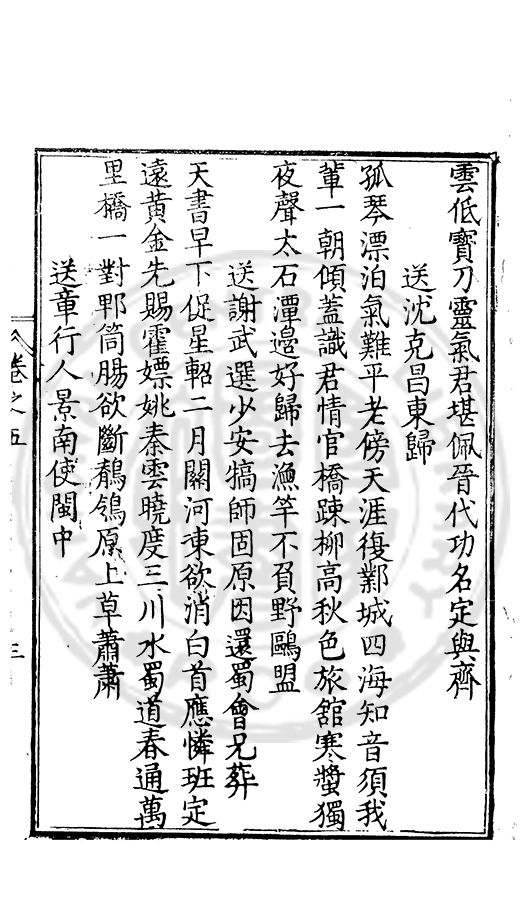 雲低寶刀靈氣君堪佩晉代功名定與齊
送沈克昌東歸
孤琴漂泊氣難平老傍天涯復鄴城四海知音須我
輩一朝傾蓋識君情官橋踈柳高秋色旅舘寒螿獨
夜聲太石潭邊好歸去漁竿不負野鷗盟
送謝武選少安犒師固原因還蜀會兄葬
天書早下促星軺二月關河凍欲消白首應憐班定
遠黃金先賜霍嫖姚秦雲曉度三川水蜀道春通萬
里橋一對郫筒腸欲斷鶺鴒原上草蕭蕭
送章行人景南使閩中
卷之五
三